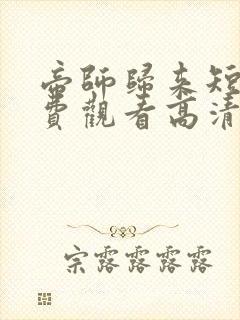 帝師歸來短
費觀看高清
宗露露露露